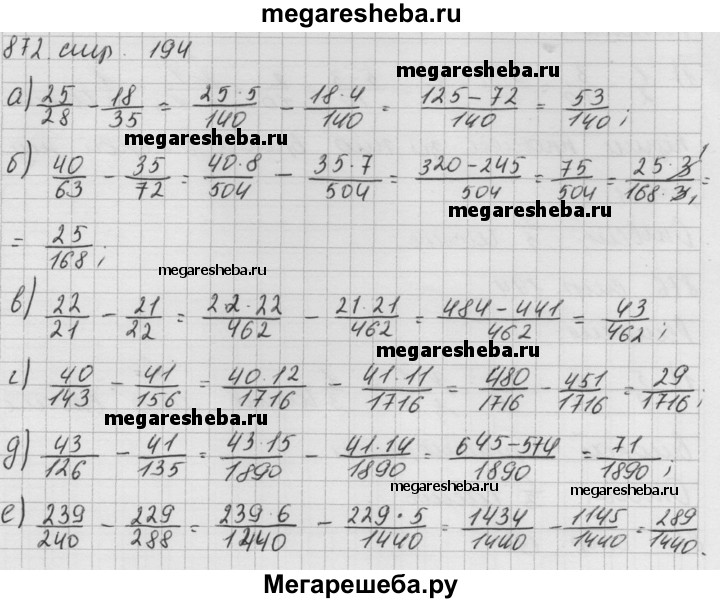 megaresheba.ru
872. стр. 194
megaresheba.ru
а) 25/28 − 18/35 = 25·5/140 − 18·4/140 = 125−72/140 = 53/140;
megaresheba.ru
б) 40/63 − 35/72 = 40·8/504 − 35·7/504 = 320−245/504 = 75/504 = 25·3 1/168·3 1 =
megaresheba.ru
= 25/168;
megaresheba.ru
в) 22/21 − 21/22 = 22·22/462 − 21·21/462 = 484−441/462 = 43/462;
megaresheba.ru
г) 40/143 − 41/156 = 40·12/1716 − 41·11/1716 = 480/1716 − 451/1716 = 29/1716;
megaresheba.ru
д) 43/126 − 41/135 = 43·15/1890 − 41·14/1890 = 645−574/1890 = 71/1890;
megaresheba.ru
megaresheba.ru
е) 239/240 − 229/288 = 239·6/1440 − 229·5/1440 = 1434/1440 − 1145/1440 = 289/1440.
Мегарешеба.ру